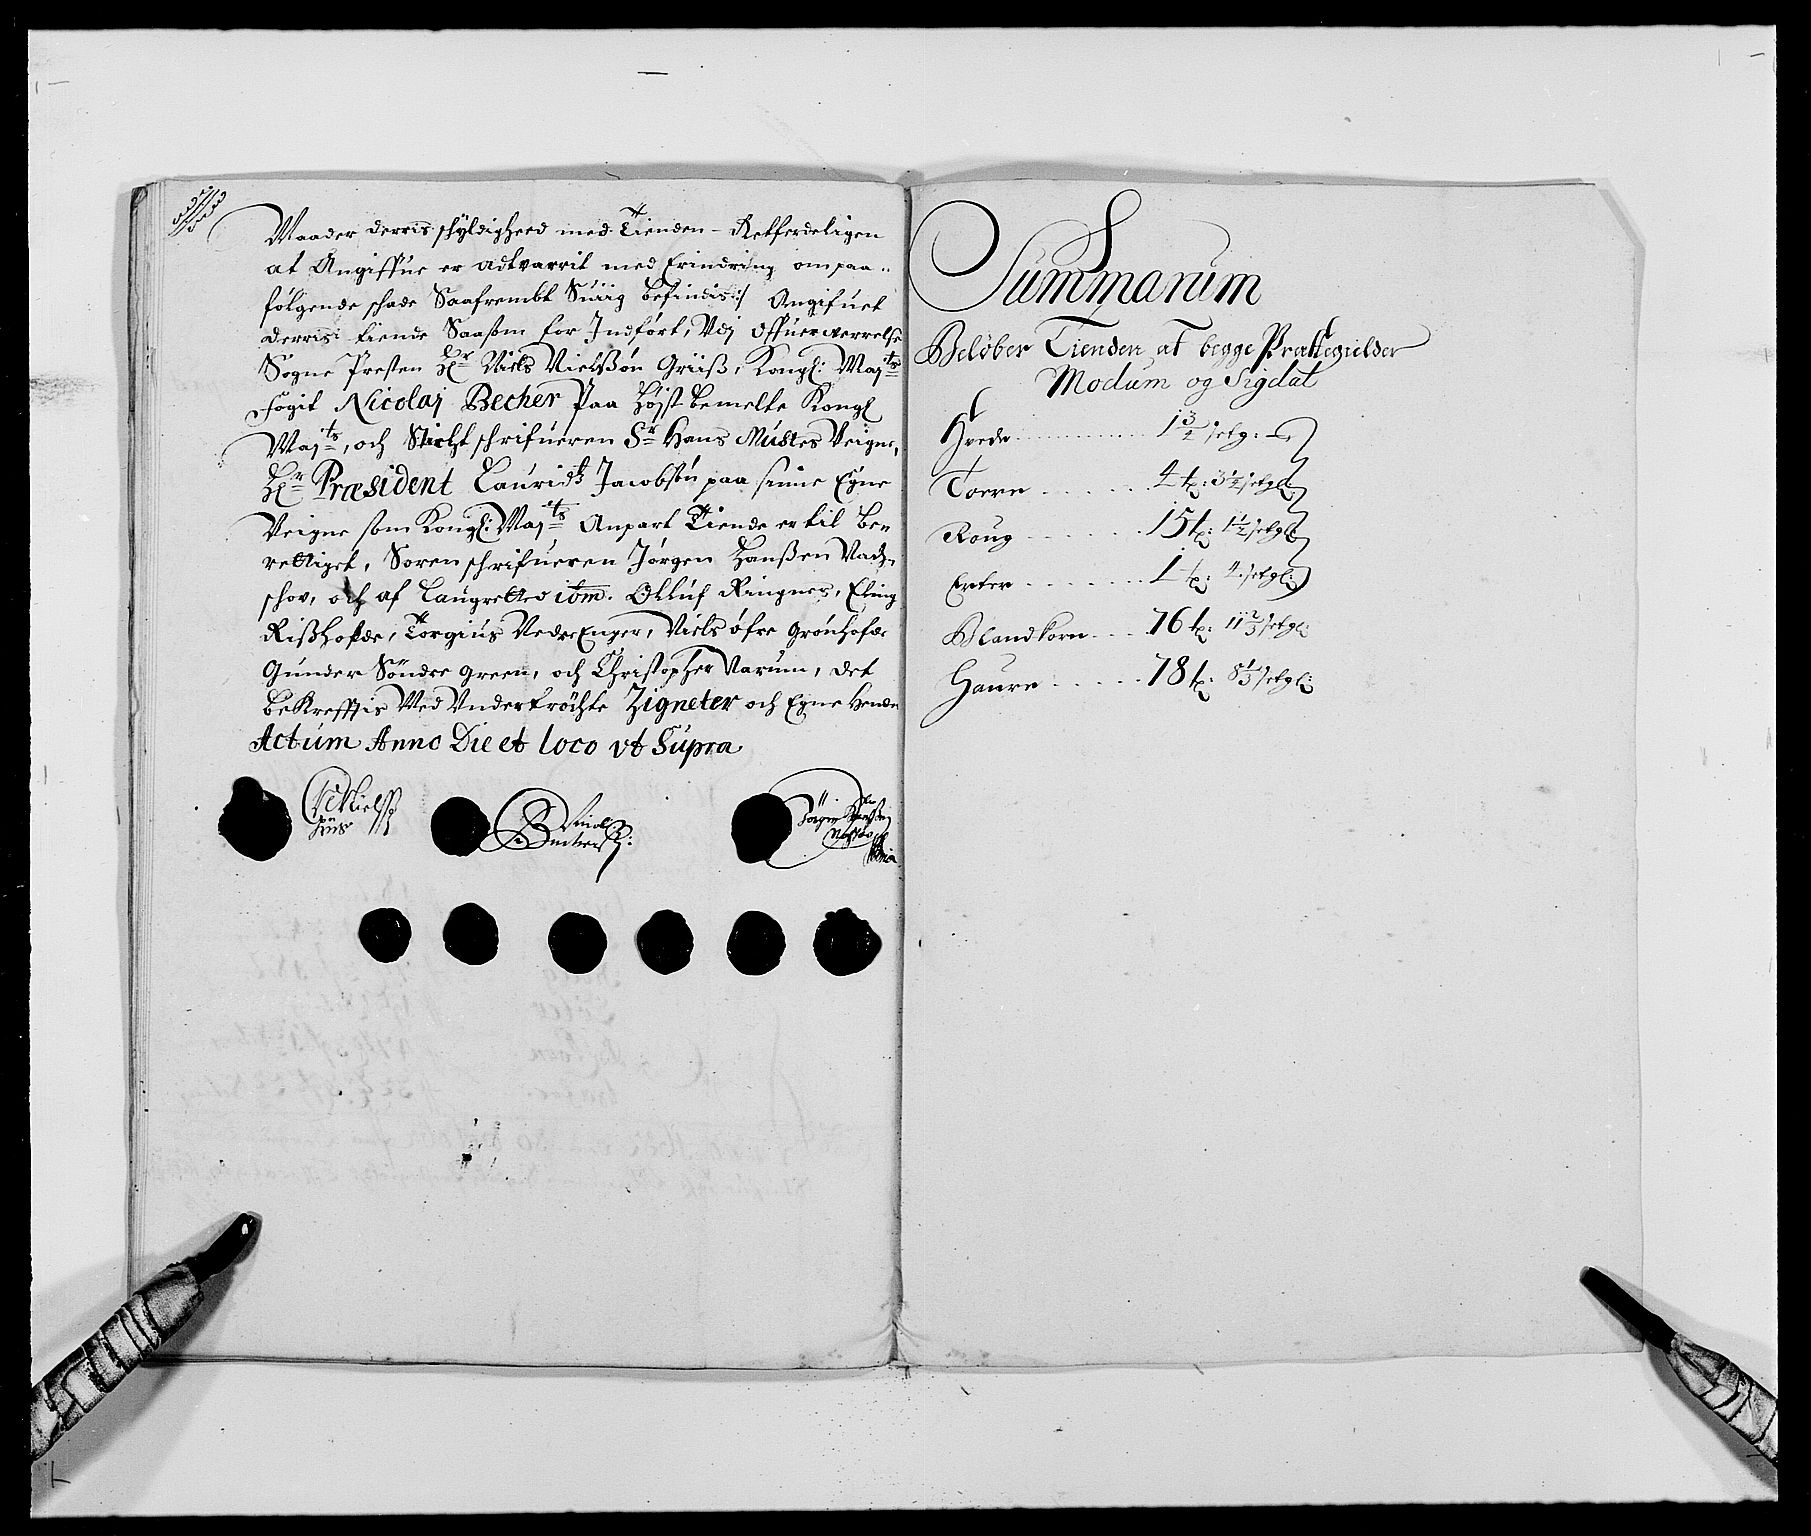 Maader derris schyldigheed med Tienden Retferdeligen
at Angiffue er advarrit med Erindring om paa
følgende schade Saafrembt Suiig befindis :/ Angifuet
derris tiende Saasom for Indført, Vdj Offuerwerrelse
Sogne Presten Hr Niels Nielsøn Griiß, Kongl: Maj:ts
fogit Nicolaj Becher Paa Høist bemelte Kongl
Maj:ts, och Stichtschrifueren Sr Hans Mustes Veigne,
Hr Præsident Lauridtz Jacobsøn paa sinne Egne
Veigne som Kongl: Maj:ts Anpart Tiende er til be-
rettiget, Sorenschrifueren Jørgen Hanßen Vad-
schov, och af Laugretted ibm. Olluf Ringnes, Eling
Rißhofde, Torgius Nedre Enger, Niels øfre Grønhofde
Gunder Søndre Green, och Christopher Varum, det
bekrefftis Med Vndertröchte Zigneter och Egne Hender
Actum Anno Die et loco vt Supra
Summarum
Beløber Tienden af begge Prestegielder
Modum og Sigdal
Hvede 1 3/4 setg:
Toere 4 t: 3 1/2 setgl:
Roug 15 t: 1 1/2 setgl
Erter 1 t: 4 setgl:
Blandkorn 76 t: 11 2/3 setgl:
Haure 78 t: 8 1/3 setgl: